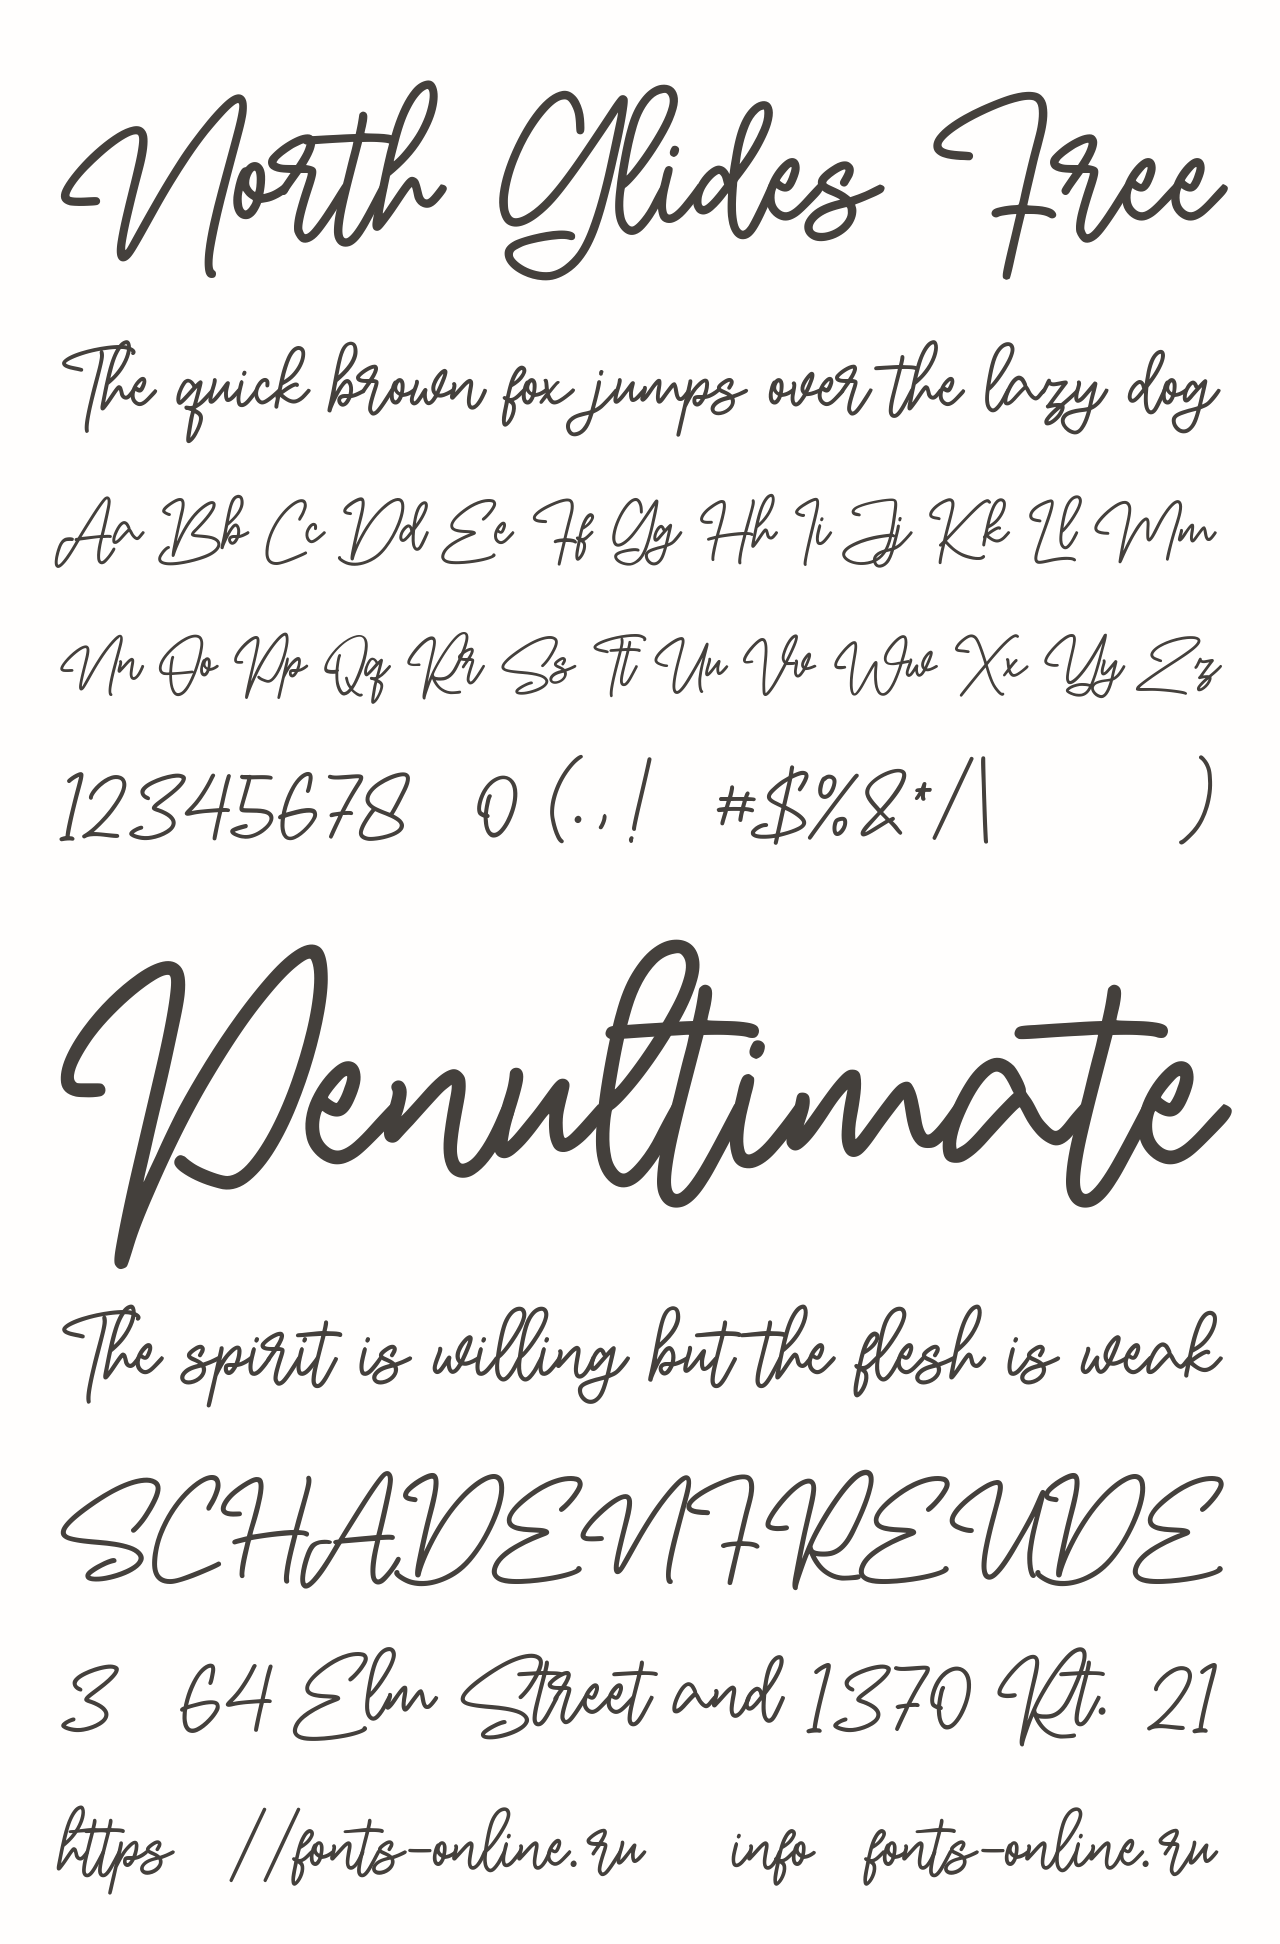 North Glides Free
The quick brown fox jumps over the lazy dog
Aa Bb Cc Dd Ee Ff Gg Hh Ii Jj Kk Ll Mm
Nn Oo Pp Qq Rr Ss Tt Uu Vv Ww Xx Yy Zz
12345678 0 (.,! #$%&*/\ )
Penultimate
The spirit is willing but the flesh is weak
SCHADENFREUDE
3 64 Elm Street and 1370 Rt. 21
https //fonts-online.ru info fonts-online.ru